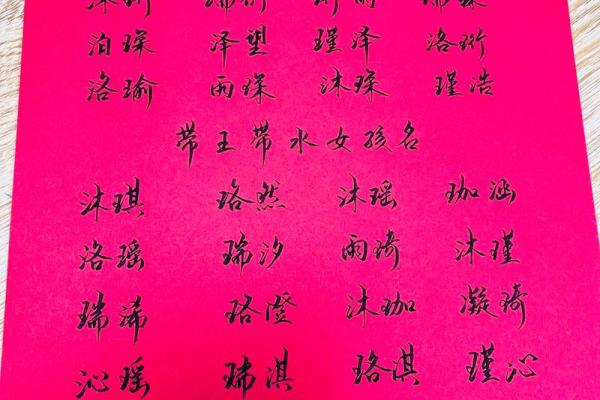 泊琛 泽望 瑾泽 洛珩
洛瑜 雨琛 沐琛 瑾浩
带王带水女孩名
沐琪 珞然 沐瑶 珈涵
洛瑶 瑞汐 雨琦 沐瑾
瑞浠 珞澄 沐珈 凝琦
沁瑶 瑞淇 珞淇 瑾沁